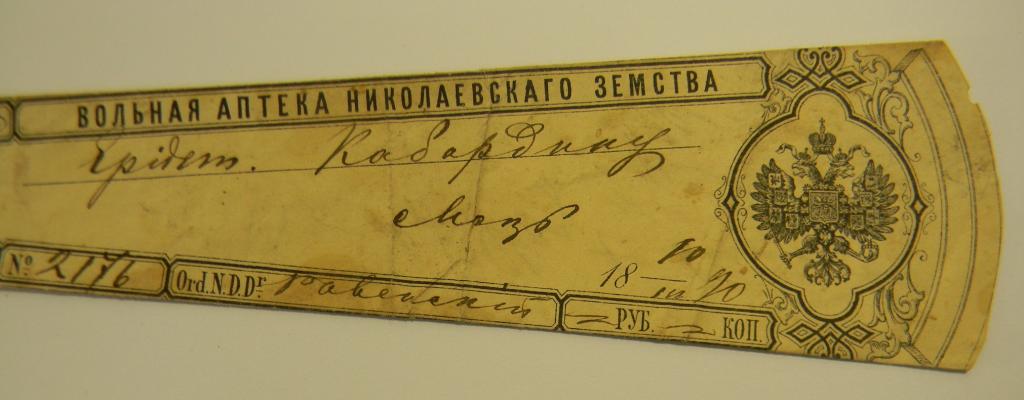 ВОЛЬНАЯ АПТЕКА НИКОЛАЕВСКАГО ЗЕМСТВА
Epidem. Кабардину
мазь
№ 2176 Ord.N.D.Dr. Равенскій 18 10/III 90 РУБ. КОП.